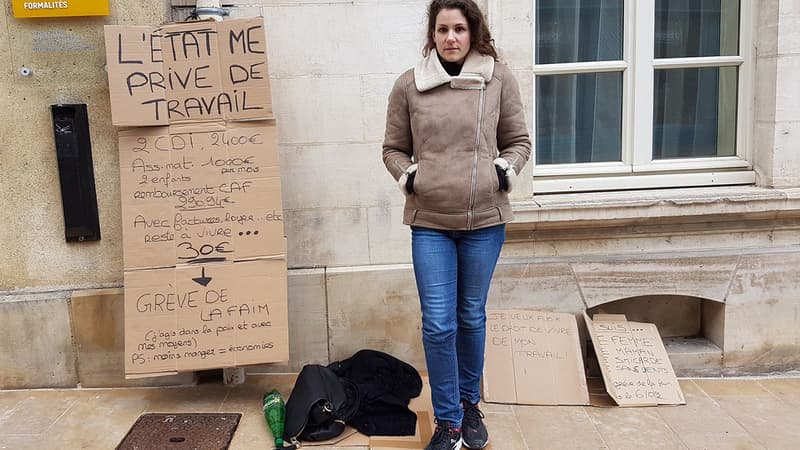 FORMALITÉS
L'ÉTAT ME
PRIVE DE
TRAVAIL
2 CDI, 2400€
Ass-mat 1000€
par mois
2 enfants
remboursement CAF
290,94€
Avec factures, loyer...etc
reste à vivre ...
30€
GRÈVE DE
LA FAIM
(J'agis dans la paix et avec
mes moyens)
PS: moins manger = économies
JE VEUX AVOIR
LE DROIT DE VIVRE
DE MON
TRAVAIL!
SUIS...
FEMME
MAMAN
SMICARDE
SANS DENTS
grève de la faim
le 6/02